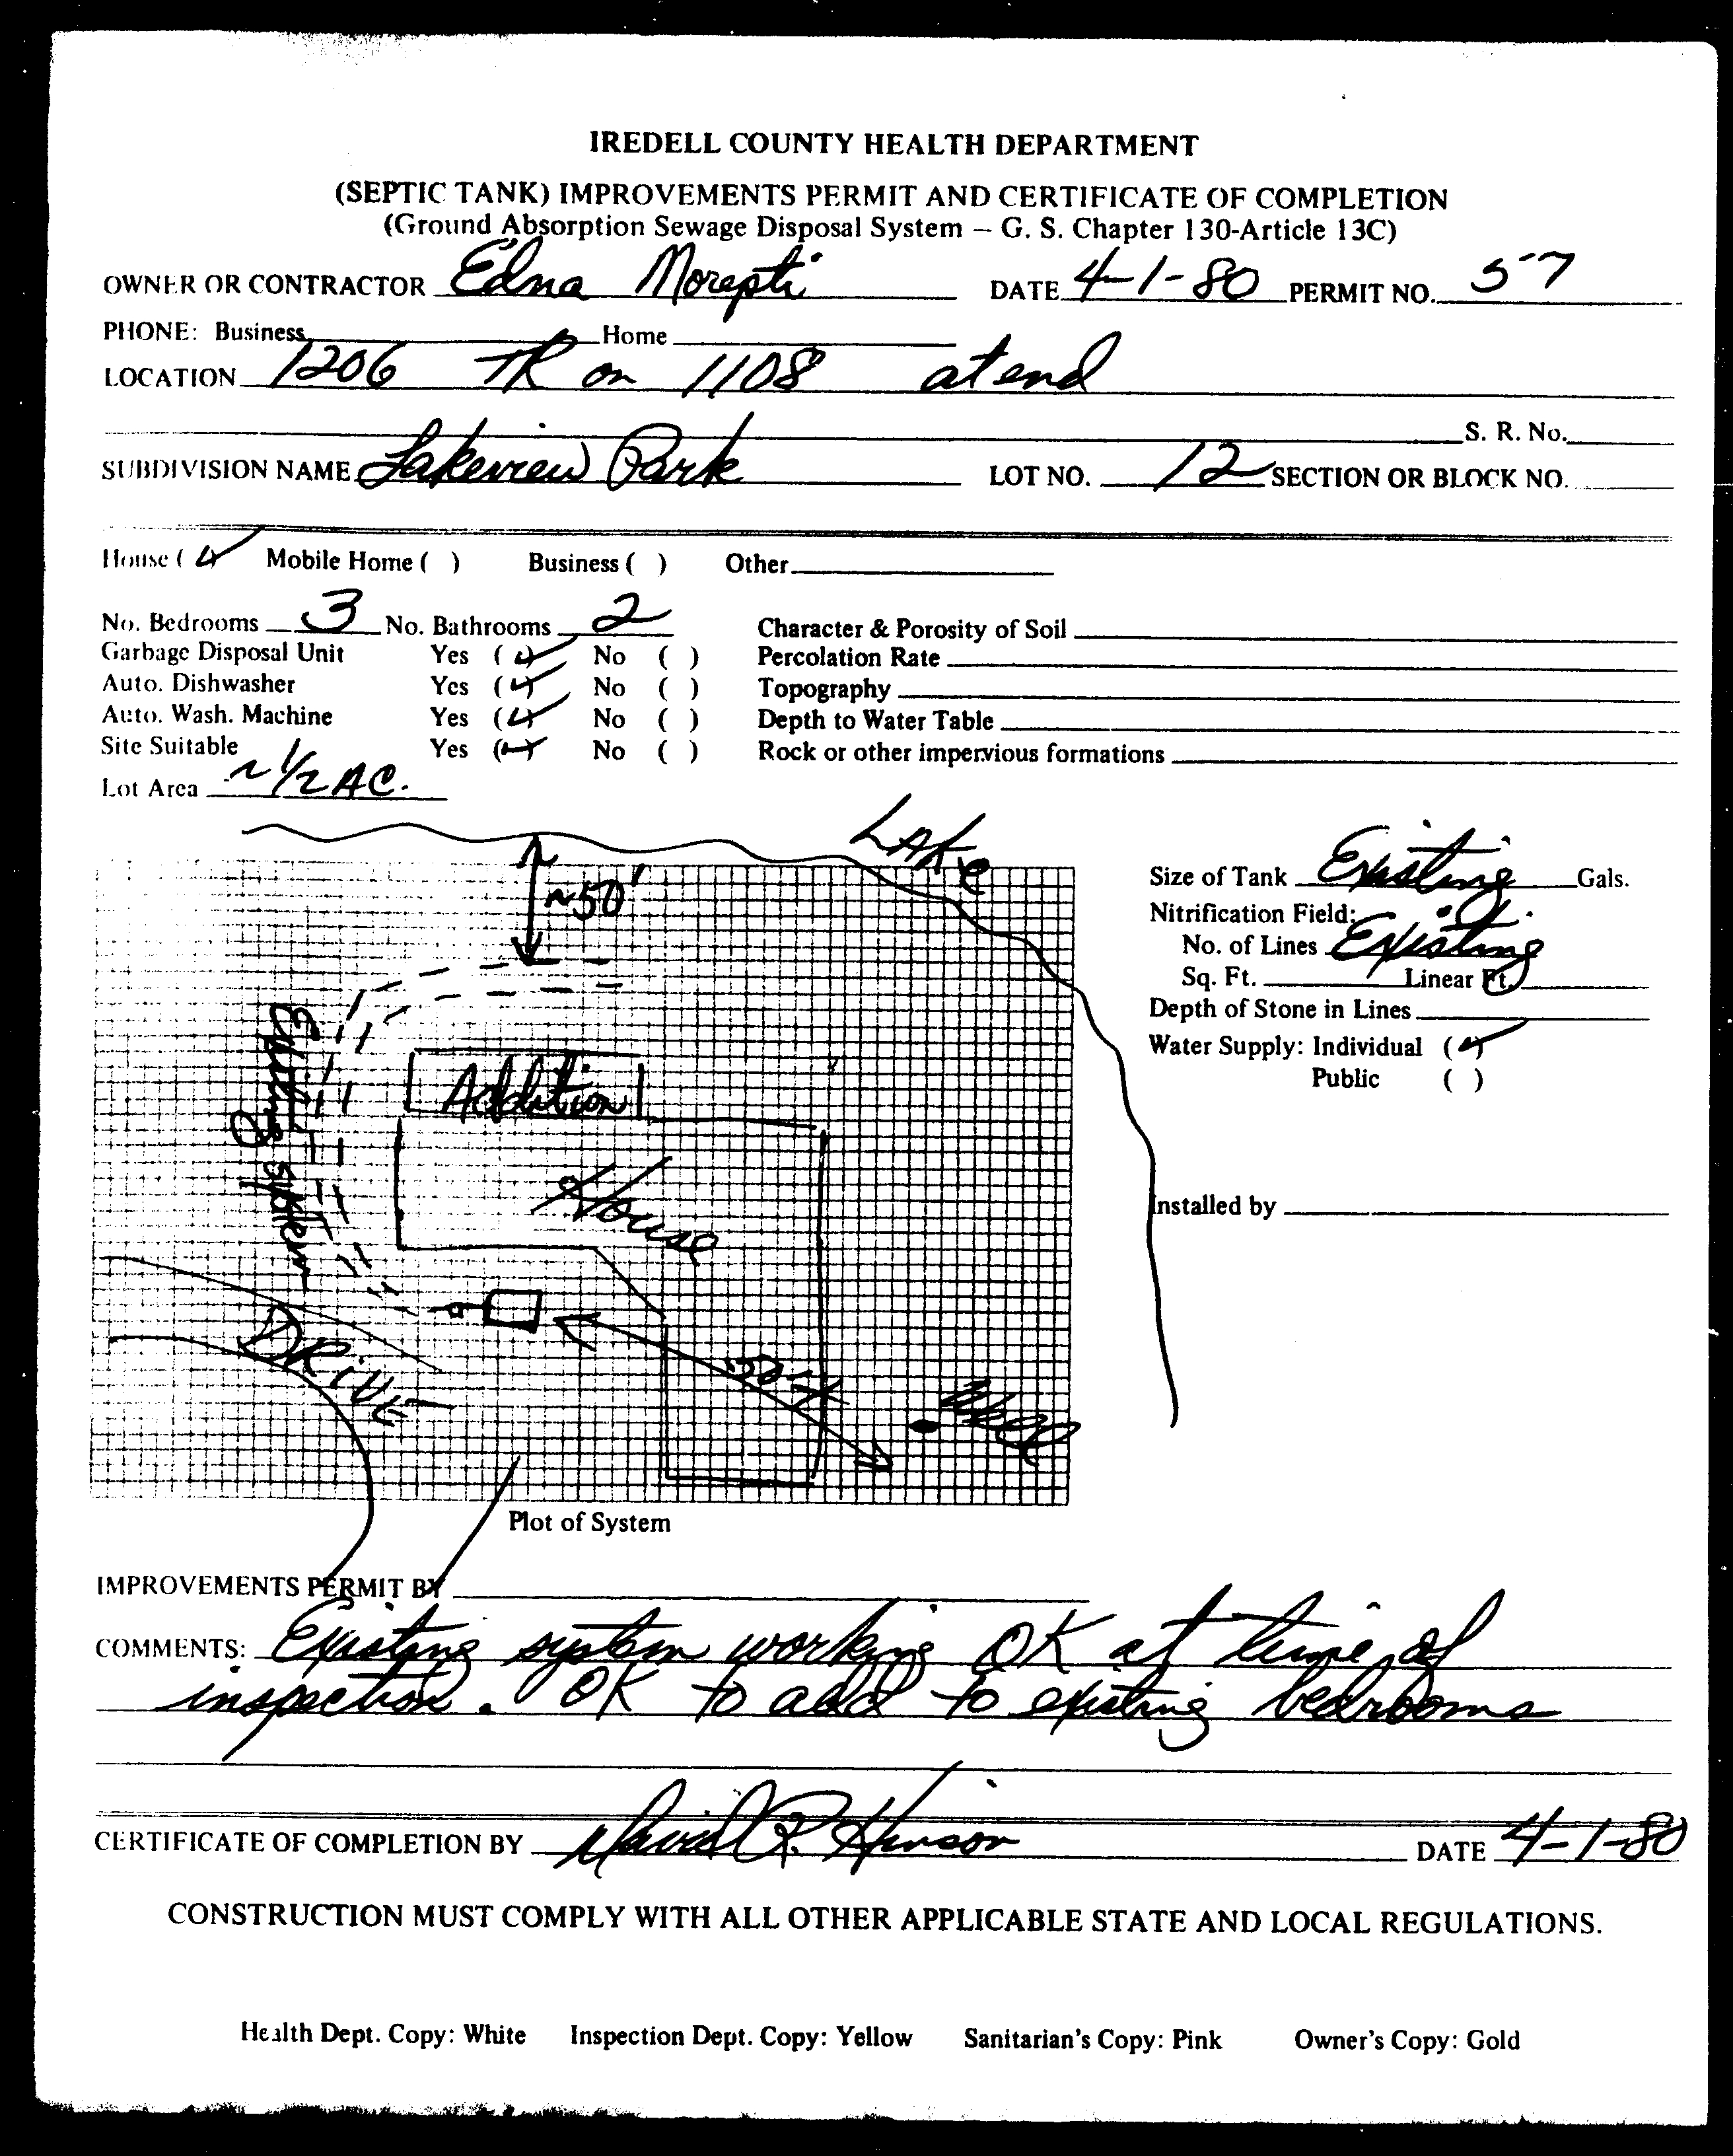 IREDELL COUNTY HEALTH DEPARTMENT
(SEPTIC TANK) IMPROVEMENTS PERMIT AND CERTIFICATE OF COMPLETION
(Ground Absorption Sewage Disposal System – G. S. Chapter 130-Article 13C)
OWNER OR CONTRACTOR Edna DATE 4-1-80 PERMIT NO. 57
PHONE: Business Home
LOCATION 1206 TR on 1108 at end
S. R. No.
SUBDIVISION NAME Lakeview Park LOT NO. 12 SECTION OR BLOCK NO.
House ( ) Mobile Home ( ) Business ( ) Other
No. Bedrooms 3 No. Bathrooms 2 Character & Porosity of Soil
Garbage Disposal Unit Yes (✓) No ( ) Percolation Rate
Auto. Dishwasher Yes (✓) No ( ) Topography
Auto. Wash. Machine Yes (✓) No ( ) Depth to Water Table
Site Suitable Yes (✓) No ( ) Rock or other impervious formations
Lot Area ~1/2 AC.
LAKe
~50'
Existing system
Addition
House
DRIVE
50'+
Size of Tank Existing Gals.
Nitrification Field:
No. of Lines Existing
Sq. Ft. Linear Ft.
Depth of Stone in Lines
Water Supply: Individual (✓)
Public ( )
Installed by
Plot of System
IMPROVEMENTS PERMIT BY
COMMENTS: Existing system working OK at time of
inspection. OK to add to existing bedrooms
CERTIFICATE OF COMPLETION BY David R. Hinson DATE 4-1-80
CONSTRUCTION MUST COMPLY WITH ALL OTHER APPLICABLE STATE AND LOCAL REGULATIONS.
Health Dept. Copy: White Inspection Dept. Copy: Yellow Sanitarian's Copy: Pink Owner's Copy: Gold